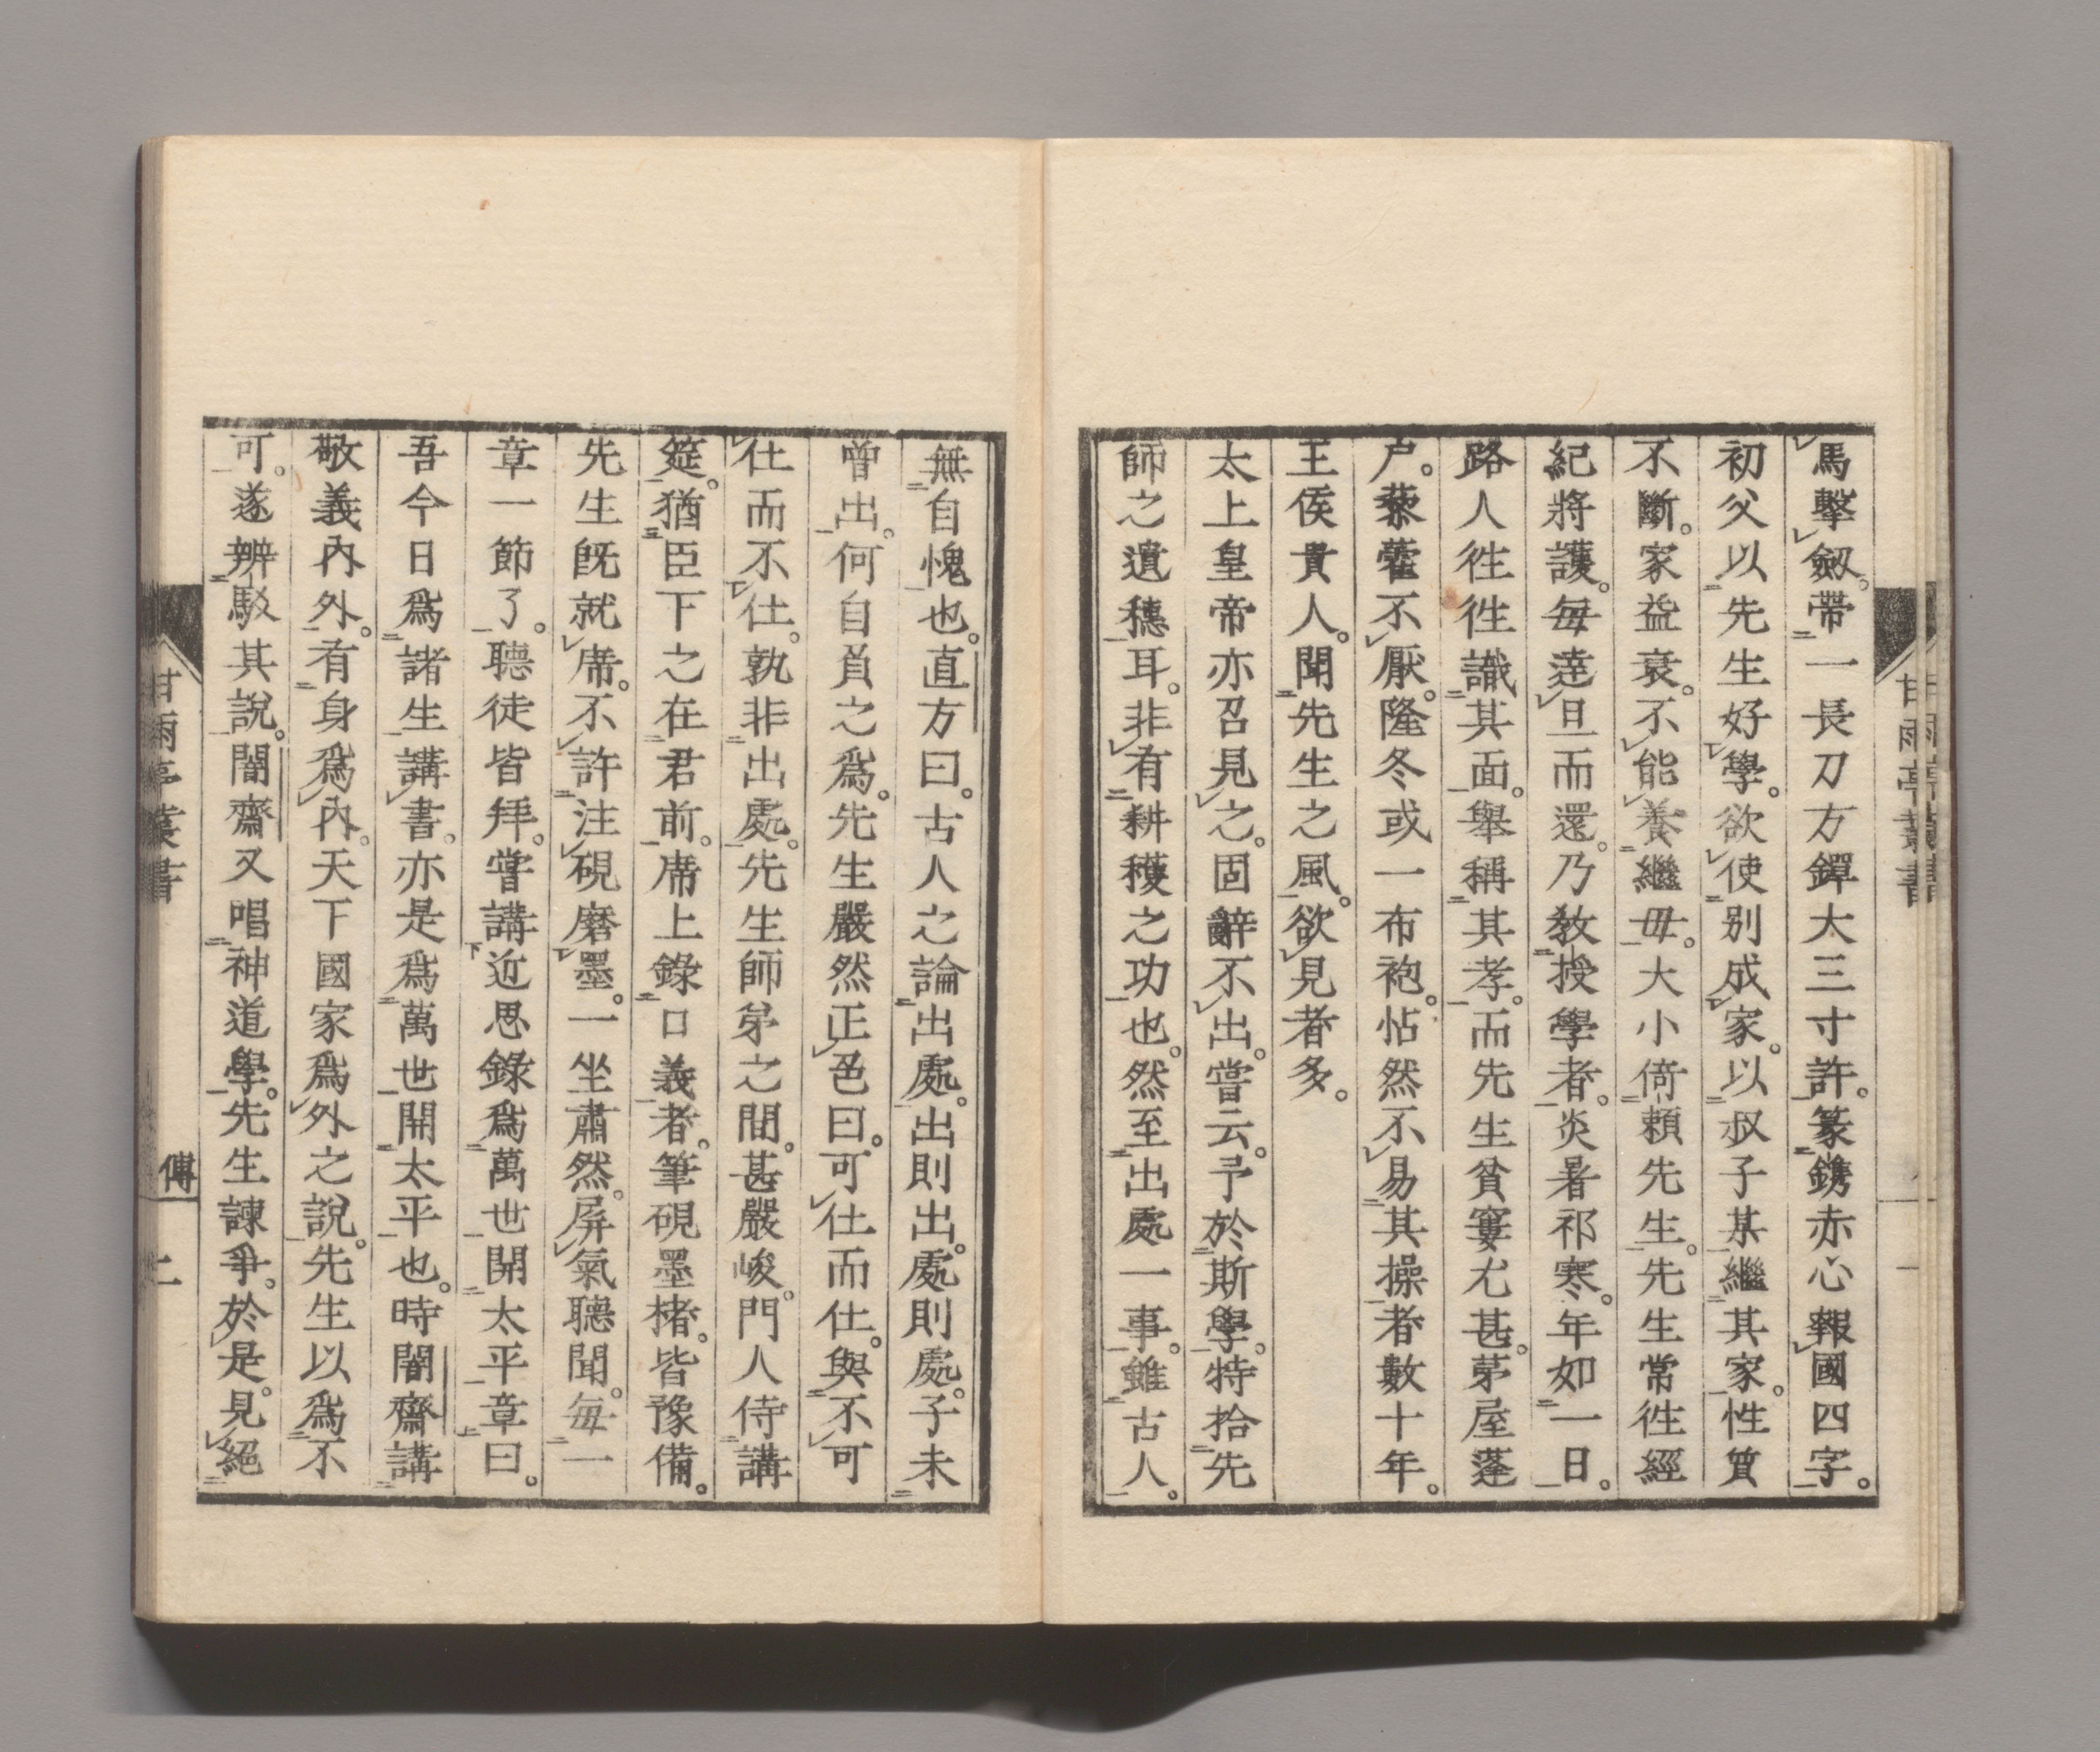 甘雨亭叢書
馬擊劔。帶一長刀方鐔大三寸許。篆鐫赤心報國四字。
初父以先生好學。欲使别成家。以叔子某繼其家。性質
不斷。家益衰。不能養繼母。大小倚頼先生。先生常徃經
紀將護。毎達旦而還。乃敎授學者。炎暑祁寒。年如一日。
路人徃徃識其面。舉稱其孝。而先生貧窶尤甚。茅屋蓬
户。藜藿不厭。隆冬或一布袍。怗然不易其操者數十年。
王侯貴人。聞先生之風。欲見者多。
太上皇帝亦召見之。固辭不出。嘗云。予於斯學。特拾先
師之遺穗耳。非有耕穫之功也。然至出處一事。雖古人。
無自愧也。直方曰。古人之論出處。出則出。處則處。子未
曾出。何自負之爲。先生嚴然正色曰。可仕而仕。與不可
仕而不仕。孰非出處。先生師弟之間。甚嚴峻。門人侍講
筵。猶臣下之在君前。席上錄口義者。筆硯墨楮。皆豫備。
先生旣就席。不許注硯磨墨。一坐肅然。屏氣聽聞。毎一
章一節了。聽徒皆拜。嘗講近思錄爲萬世開太平章曰。
吾今日爲諸生講書。亦是爲萬世開太平也。時闇齋講
敬義內外。有身爲內。天下國家爲外之說。先生以爲不
可。遂辨駁其說。闇齋又唱神道學。先生諫爭。於是見絕
甘雨亭叢書
傳
二